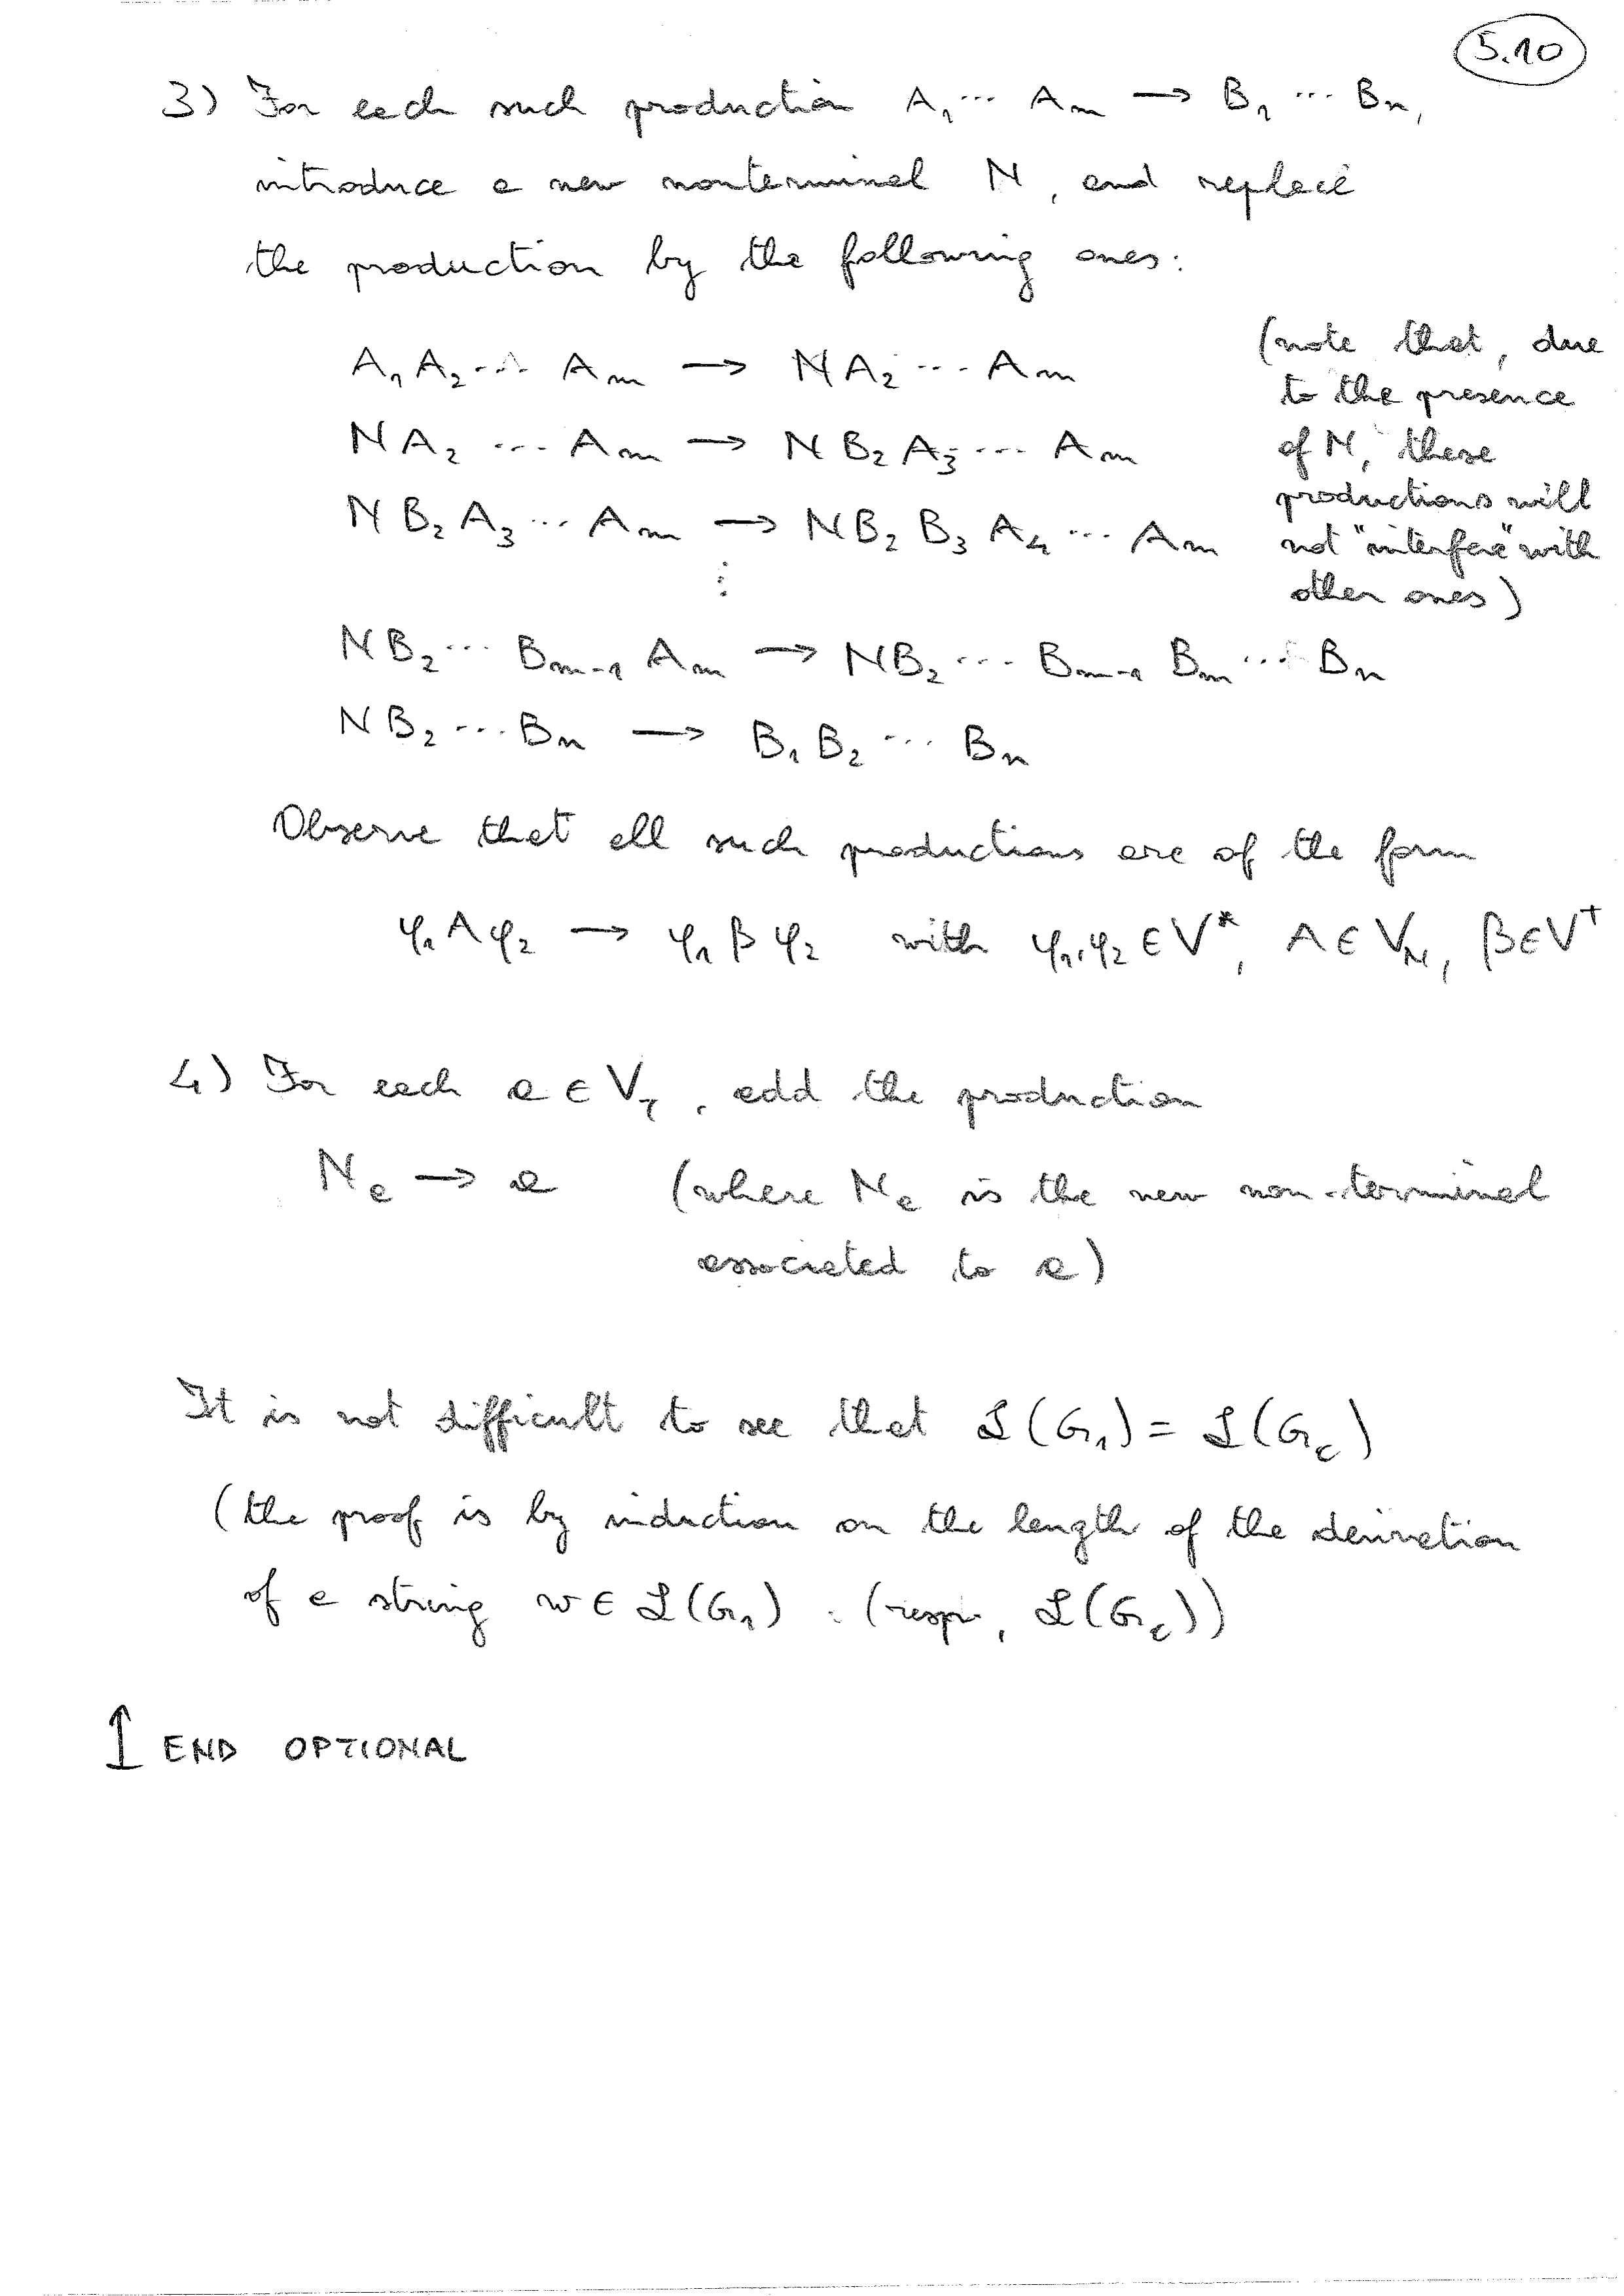 5.10
3) For each such production A₁ ··· Aₘ → B₁ ··· Bₙ,
introduce a new nonterminal N, and replace
the production by the following ones:
A₁ A₂ ··· Aₘ → N A₂ ··· Aₘ
N A₂ ··· Aₘ → N B₂ A₃ ··· Aₘ
N B₂ A₃ ··· Aₘ → N B₂ B₃ A₄ ··· Aₘ
⋮
N B₂ ··· Bₘ₋₁ Aₘ → N B₂ ··· Bₘ₋₁ Bₘ ··· Bₙ
N B₂ ··· Bₙ → B₁ B₂ ··· Bₙ
(note that, due
to the presence
of N, these
productions will
not "interfere" with
other ones)
Observe that all such productions are of the form
φ₁ A φ₂ → φ₁ β φ₂ with φ₁, φ₂ ∈ V*, A ∈ V_N, β ∈ V⁺
4) For each a ∈ V_T, add the production
N_a → a (where N_a is the new non-terminal
associated to a)
It is not difficult to see that ℒ(G₁) = ℒ(G_c)
(the proof is by induction on the length of the derivation
of a string w ∈ ℒ(G₁) (resp., ℒ(G_c))
↑ END OPTIONAL